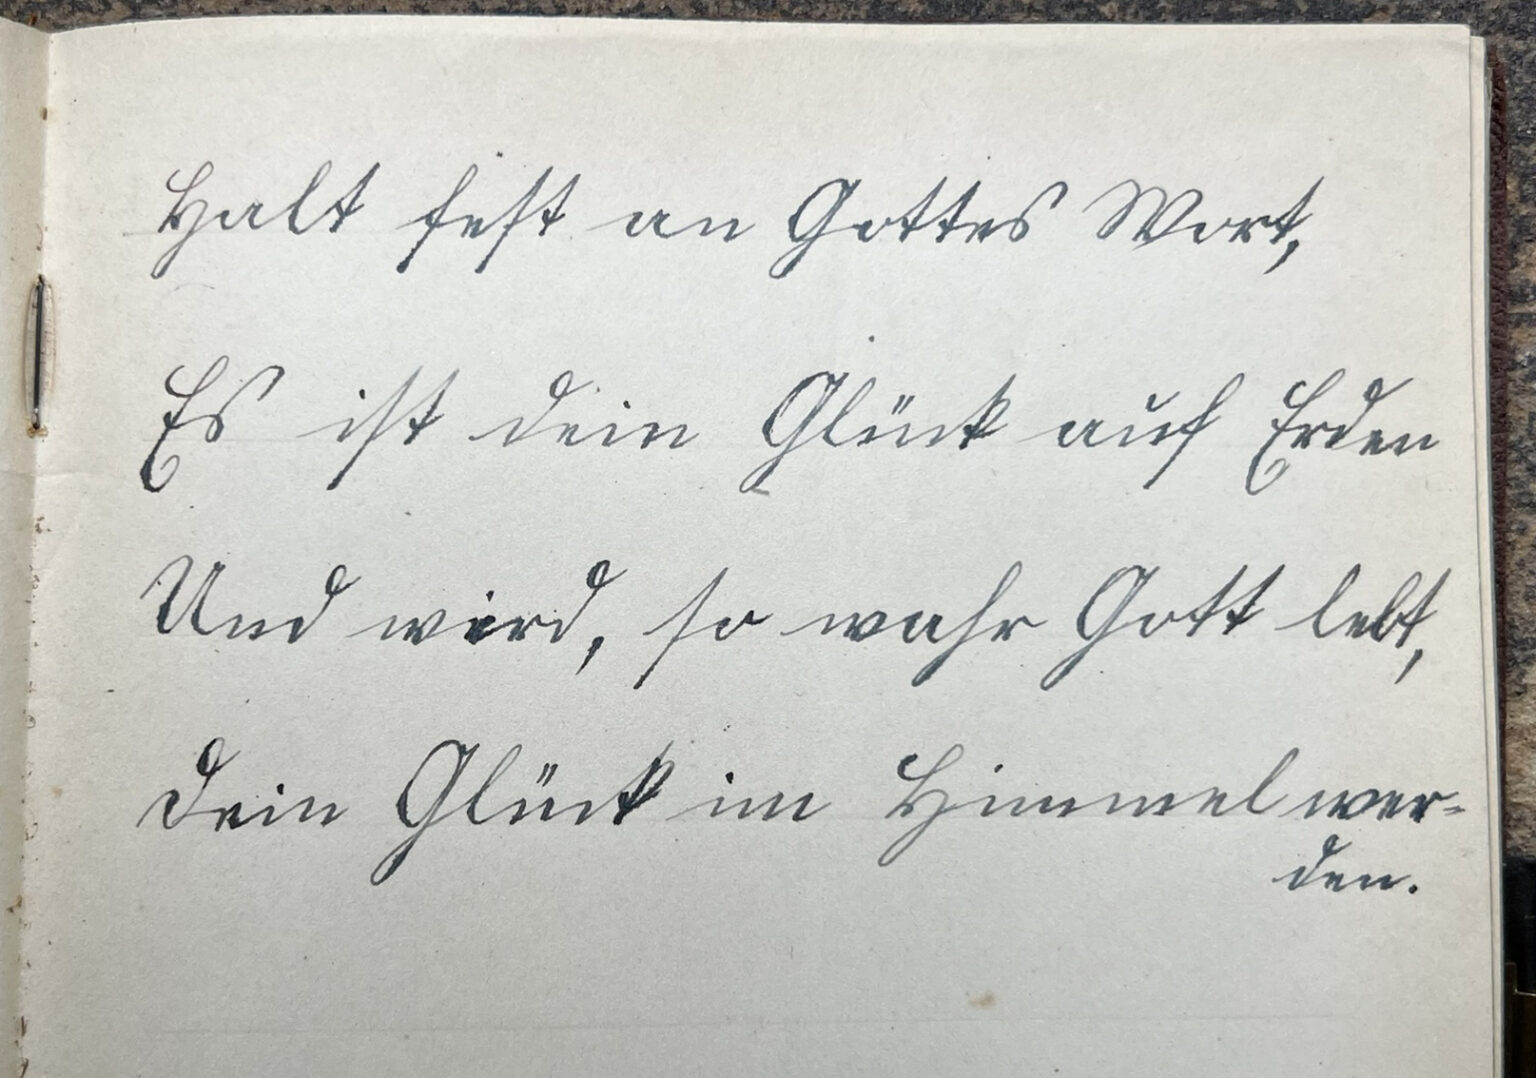 Halt fest an Gottes Wort,
Es ist dein Glück auf Erden
Und wird, so wahr Gott lebt,
Dein Glück im Himmel wer-
den.